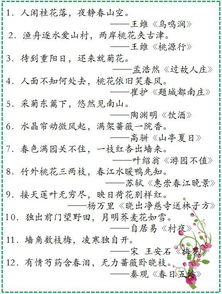 1. 人闲桂花落，夜静春山空。
——王维《鸟鸣涧》
2. 渔舟逐水爱山村，两岸桃花夹古津。
——王维《桃源行》
3. 待到重阳日，还来就菊花。
——孟浩然《过故人庄》
4. 人面不知何处去，桃花依旧笑春风。
——崔护《题城都南庄》
5. 采菊东篱下，悠然见南山。
——陶渊明《饮酒》
6. 水晶帘动微风起，满架蔷薇一院香。
——高骈《山亭夏日》
7. 春色满园关不住，一枝红杏出墙来。
——叶绍翁《游园不值》
8. 竹外桃花三两枝，春江水暖鸭先知。
——苏轼《惠崇春江晚景》
9. 接天莲叶无穷碧，映日荷花别样红。
——杨万里《晓出净慈寺送林子方》
10. 独出前门望野田，月明荞麦花如雪。
——白居易《村夜》
11. 墙角数枝梅，凌寒独自开。
——宋 王安石《梅花》
12. 有情芍药含春泪，无力蔷薇卧晓枝。
——秦观《春日五首》